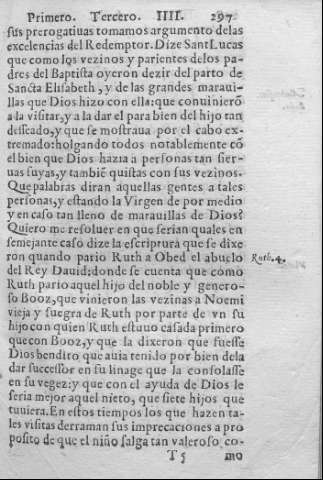 Primero. Tercero. IIII. 297
sus prerogatiuas tomamos argumento de las
excelencias del Redemptor. Dize Sant Lucas
que como los vezinos y parientes de los pa
dres del Baptista oyeron dezir del parto de
Sancta Elisabeth, y de las grandes maraui-
llas que Dios hizo con ella: que conuinierõ
a la visitar, y a la dar el para bien del hijo tan
desseado, y que se mostraua por el cabo ex-
tremado: holgando todos notablemente cõ
el bien que Dios hazia a personas tan sier-
uas suyas, y tambiẽ quistas con sus vezinos.
Que palabras diran aquellas gentes a tales
personas, y estando la Virgen de por medio
y en caso tan lleno de marauillas de Dios?
Quiero me resoluer en que serian quales en
semejante caso dize la escriptura que se dixe
ron quando pario Ruth a Obed el abuelo
del Rey Dauid: donde se cuenta que como
Ruth pario aquel hijo del noble y genero-
so Booz, que vinieron las vezinas a Noemi
vieja y suegra de Ruth por parte de vn su
hijo con quien Ruth estuuo casada primero
que con Booz, y que la dixeron que fuesse
Dios bendito que auia tenido por bien de la
dar successor en su linage que la consolasse
en su vegez: y que con el ayuda de Dios le
seria mejor aquel nieto, que siete hijos que
tuuiera. En estos tiempos los que hazen ta-
les visitas derraman sus imprecaciones a pro
posito de que el niño salga tan valeroso co-
T 5 mo
Ruth. 4.